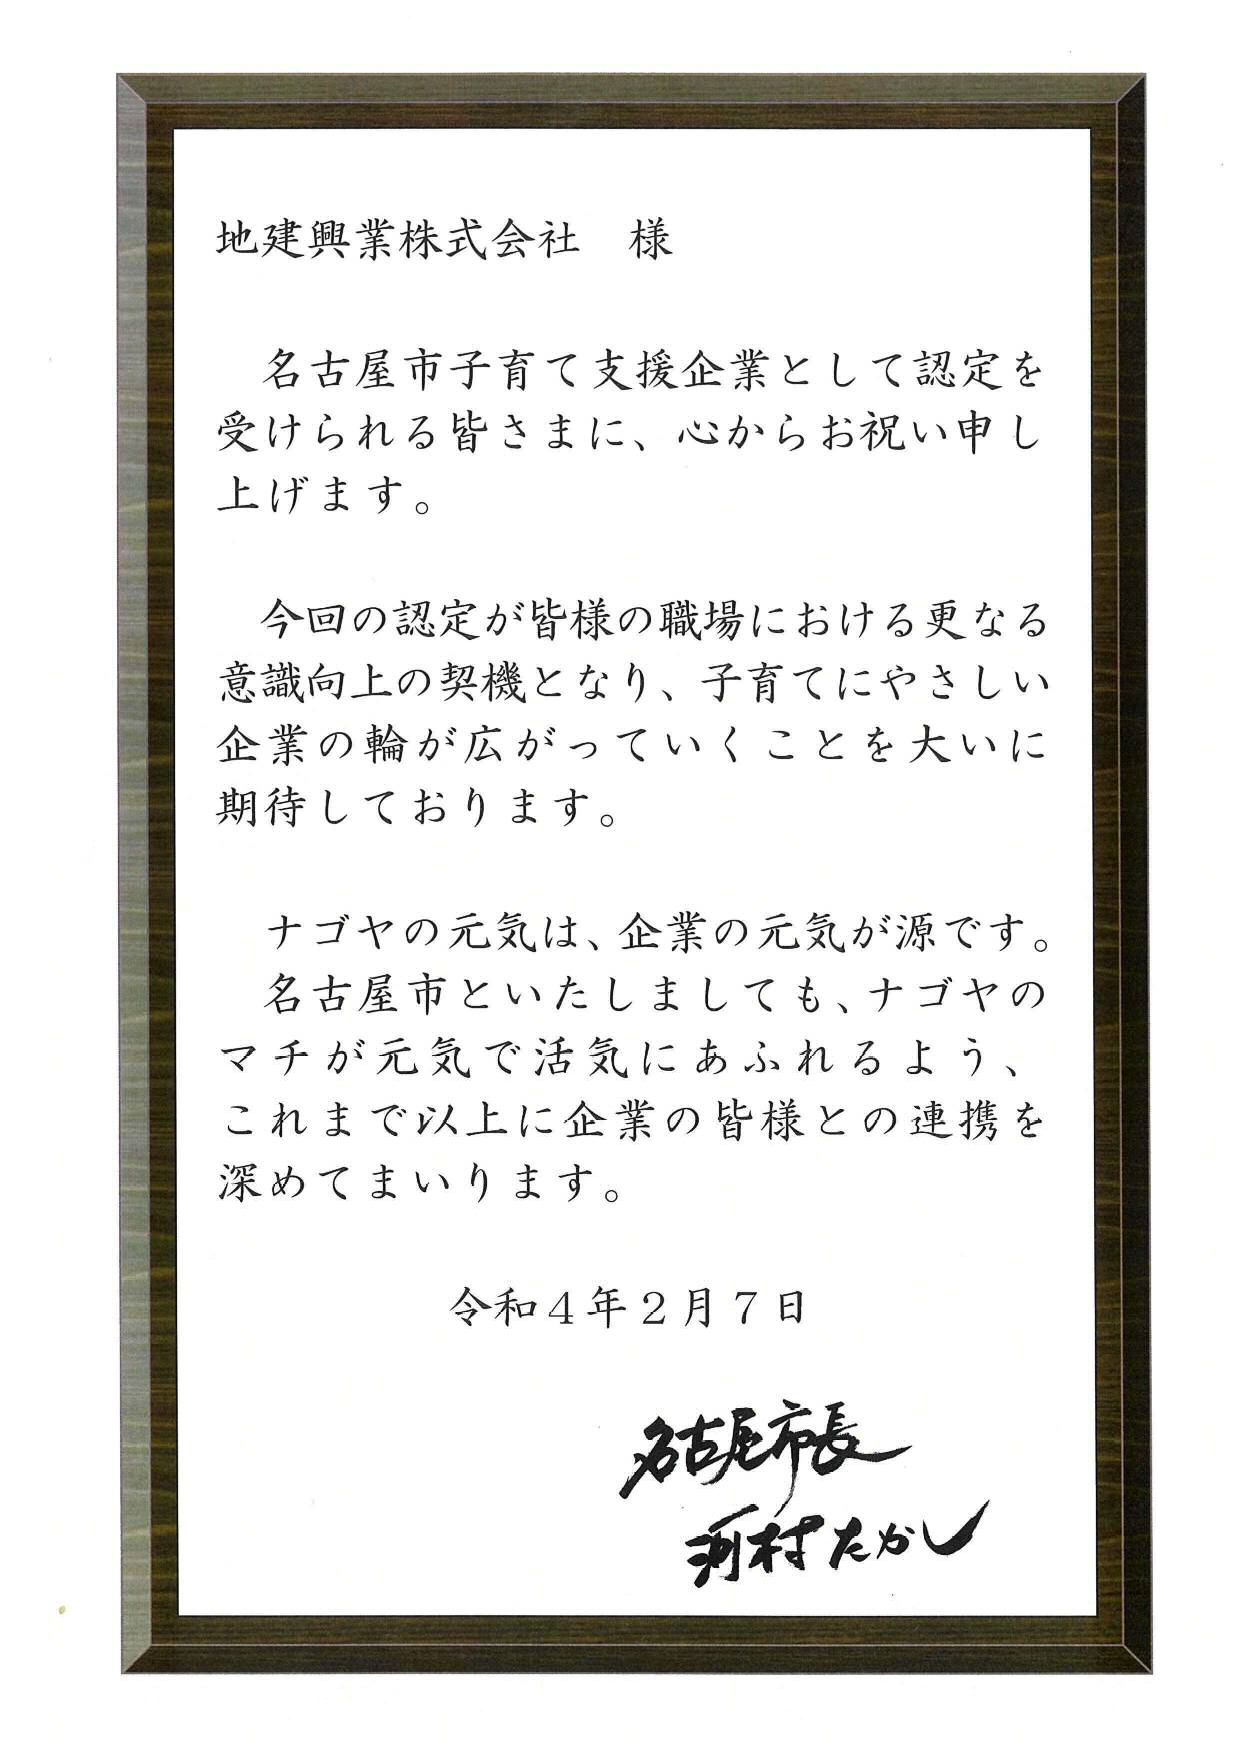 地建興業株式会社　様
名古屋市子育て支援企業として認定を
受けられる皆さまに、心からお祝い申し
上げます。
今回の認定が皆様の職場における更なる
意識向上の契機となり、子育てにやさしい
企業の輪が広がっていくことを大いに
期待しております。
ナゴヤの元気は、企業の元気が源です。
名古屋市といたしましても、ナゴヤの
マチが元気で活気にあふれるよう、
これまで以上に企業の皆様との連携を
深めてまいります。
令和４年２月７日
名古屋市長
河村たかし